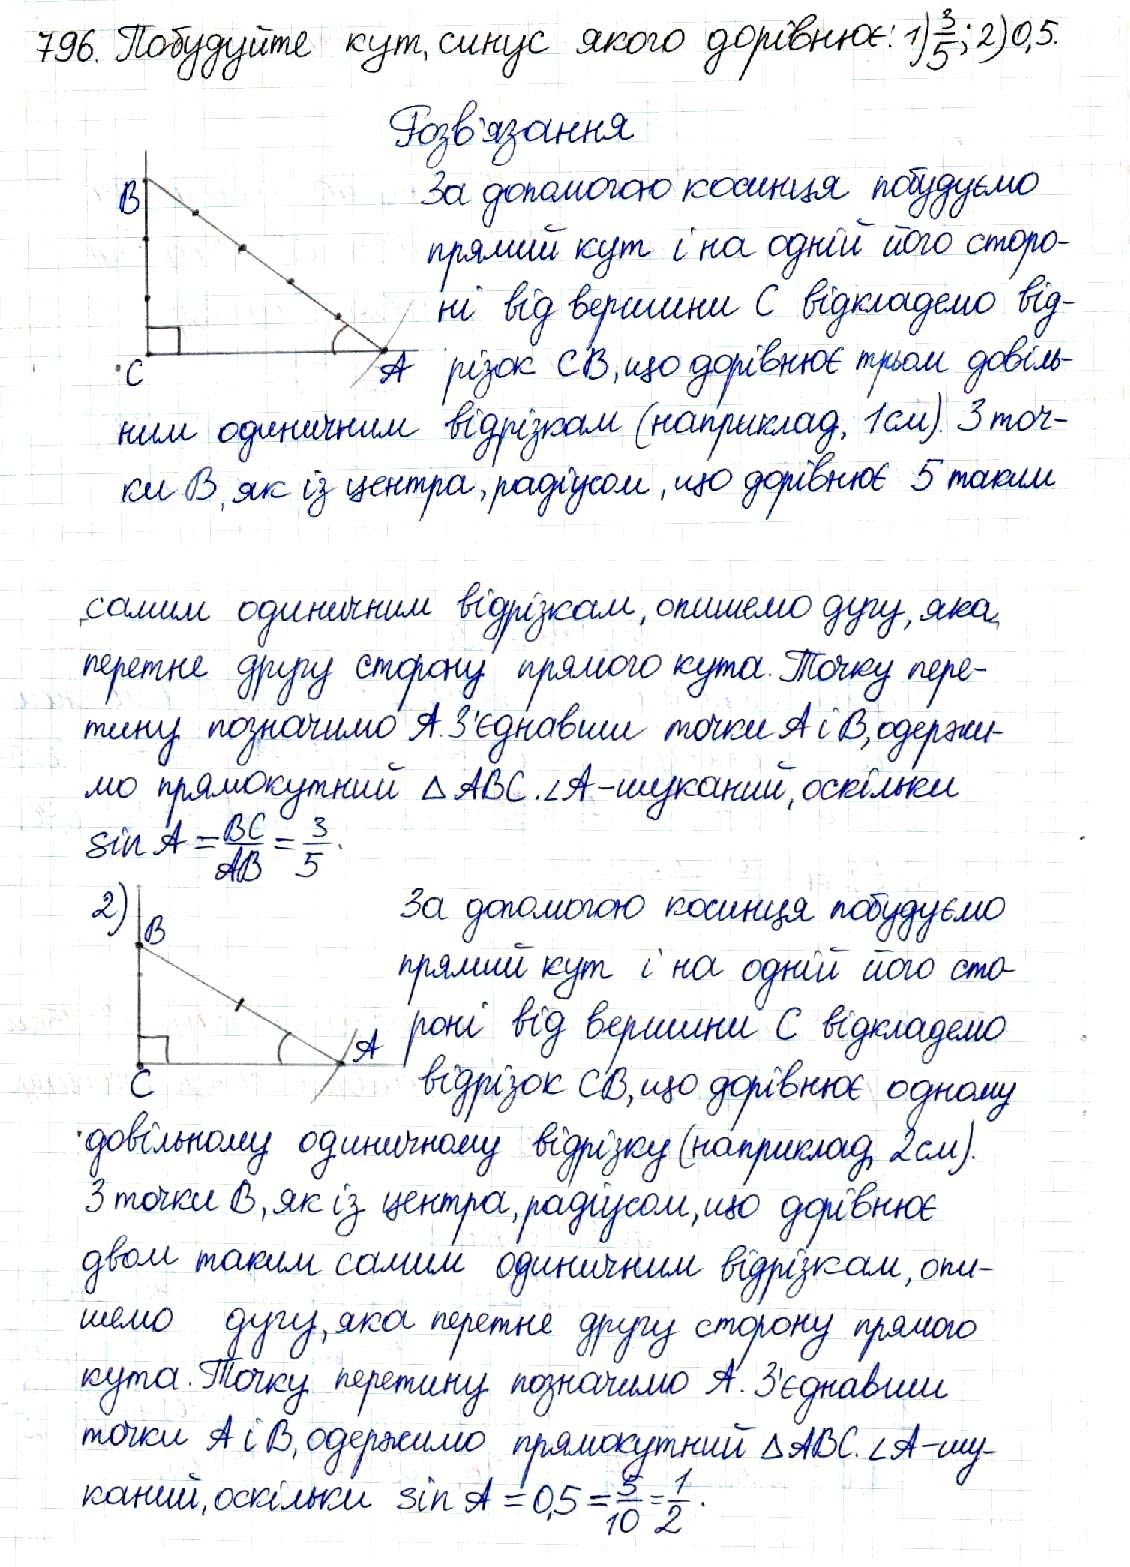 796. Побудуйте кут, синус якого дорівнює: 1) 3/5; 2) 0,5.
Розв'язання
B
C
A
За допомогою косинця побудуємо
прямий кут і на одній його сторо-
ні від вершини C відкладемо від-
різок CB, що дорівнює трьом довіль-
ним одиничним відрізкам (наприклад, 1см). З точ-
ки B, як із центра, радіусом, що дорівнює 5 таким
самим одиничним відрізкам, опишемо дугу, яка
перетне другу сторону прямого кута. Точку пере-
тину позначимо A. З'єднавши точки A і B, одержи-
мо прямокутний △ABC. ∠A - шуканий, оскільки
sin A = BC/AB = 3/5.
2)
B
C
A
За допомогою косинця побудуємо
прямий кут і на одній його сто-
роні від вершини C відкладемо
відрізок CB, що дорівнює одному
довільному одиничному відрізку (наприклад, 2см).
З точки B, як із центра, радіусом, що дорівнює
двом таким самим одиничним відрізкам, опи-
шемо дугу, яка перетне другу сторону прямого
кута. Точку перетину позначимо A. З'єднавши
точки A і B, одержимо прямокутний △ABC. ∠A - шу-
каний, оскільки sin A = 0,5 = 5/10 = 1/2.